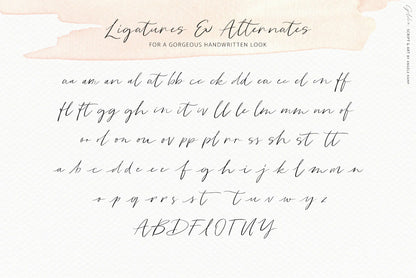 Ligatures & Alternates
FOR A GORGEOUS HANDWRITTEN LOOK
aa am an al at bb cc ck dd ea ee el en ff
fl ft gg gh in it iv ll le lm mm nn of
or ol on ou ov pp pl rr ss sh st tt
a b c d d e e f g h i j k l m m n
o p q r r s s t t u v w y z
ABDFLOTUY